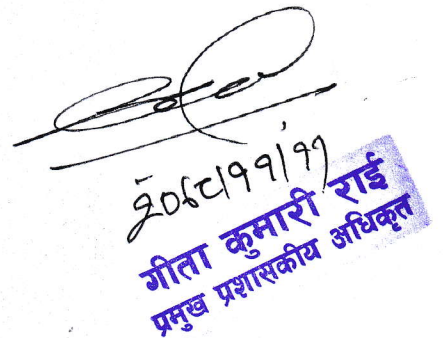 २०६८।११।१७
गीता कुमारी राई
प्रमुख प्रशासकीय अधिकृत